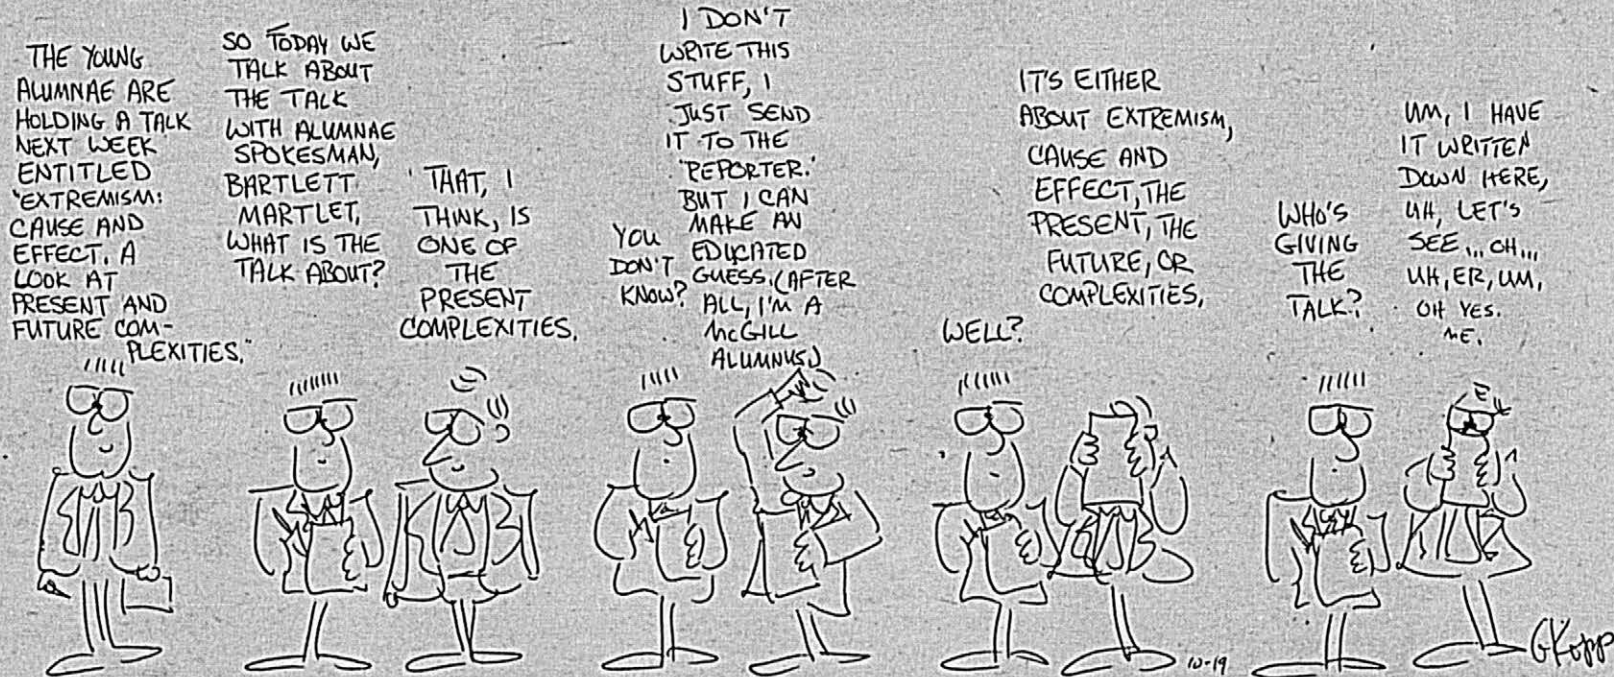 THE YOUNG
ALUMNAE ARE
HOLDING A TALK
NEXT WEEK
ENTITLED
"EXTREMISM:
CAUSE AND
EFFECT. A
LOOK AT
PRESENT AND
FUTURE COM-
PLEXITIES."
SO TODAY WE
TALK ABOUT
THE TALK
WITH ALUMNAE
SPOKESMAN,
BARTLETT
MARTLET,
WHAT IS THE
TALK ABOUT?
THAT, I
THINK, IS
ONE OF
THE
PRESENT
COMPLEXITIES.
YOU
DON'T
KNOW?
I DON'T
WRITE THIS
STUFF, I
JUST SEND
IT TO THE
'REPORTER.'
BUT I CAN
MAKE AN
EDUCATED
GUESS, (AFTER
ALL, I'M A
McGILL
ALUMNUS)
WELL?
IT'S EITHER
ABOUT EXTREMISM,
CAUSE AND
EFFECT, THE
PRESENT, THE
FUTURE, OR
COMPLEXITIES.
WHO'S
GIVING
THE
TALK?
UM, I HAVE
IT WRITTEN
DOWN HERE,
UH, LET'S
SEE... OH...
UH, ER, UM,
OH YES.
ME.
10-19
GKopp